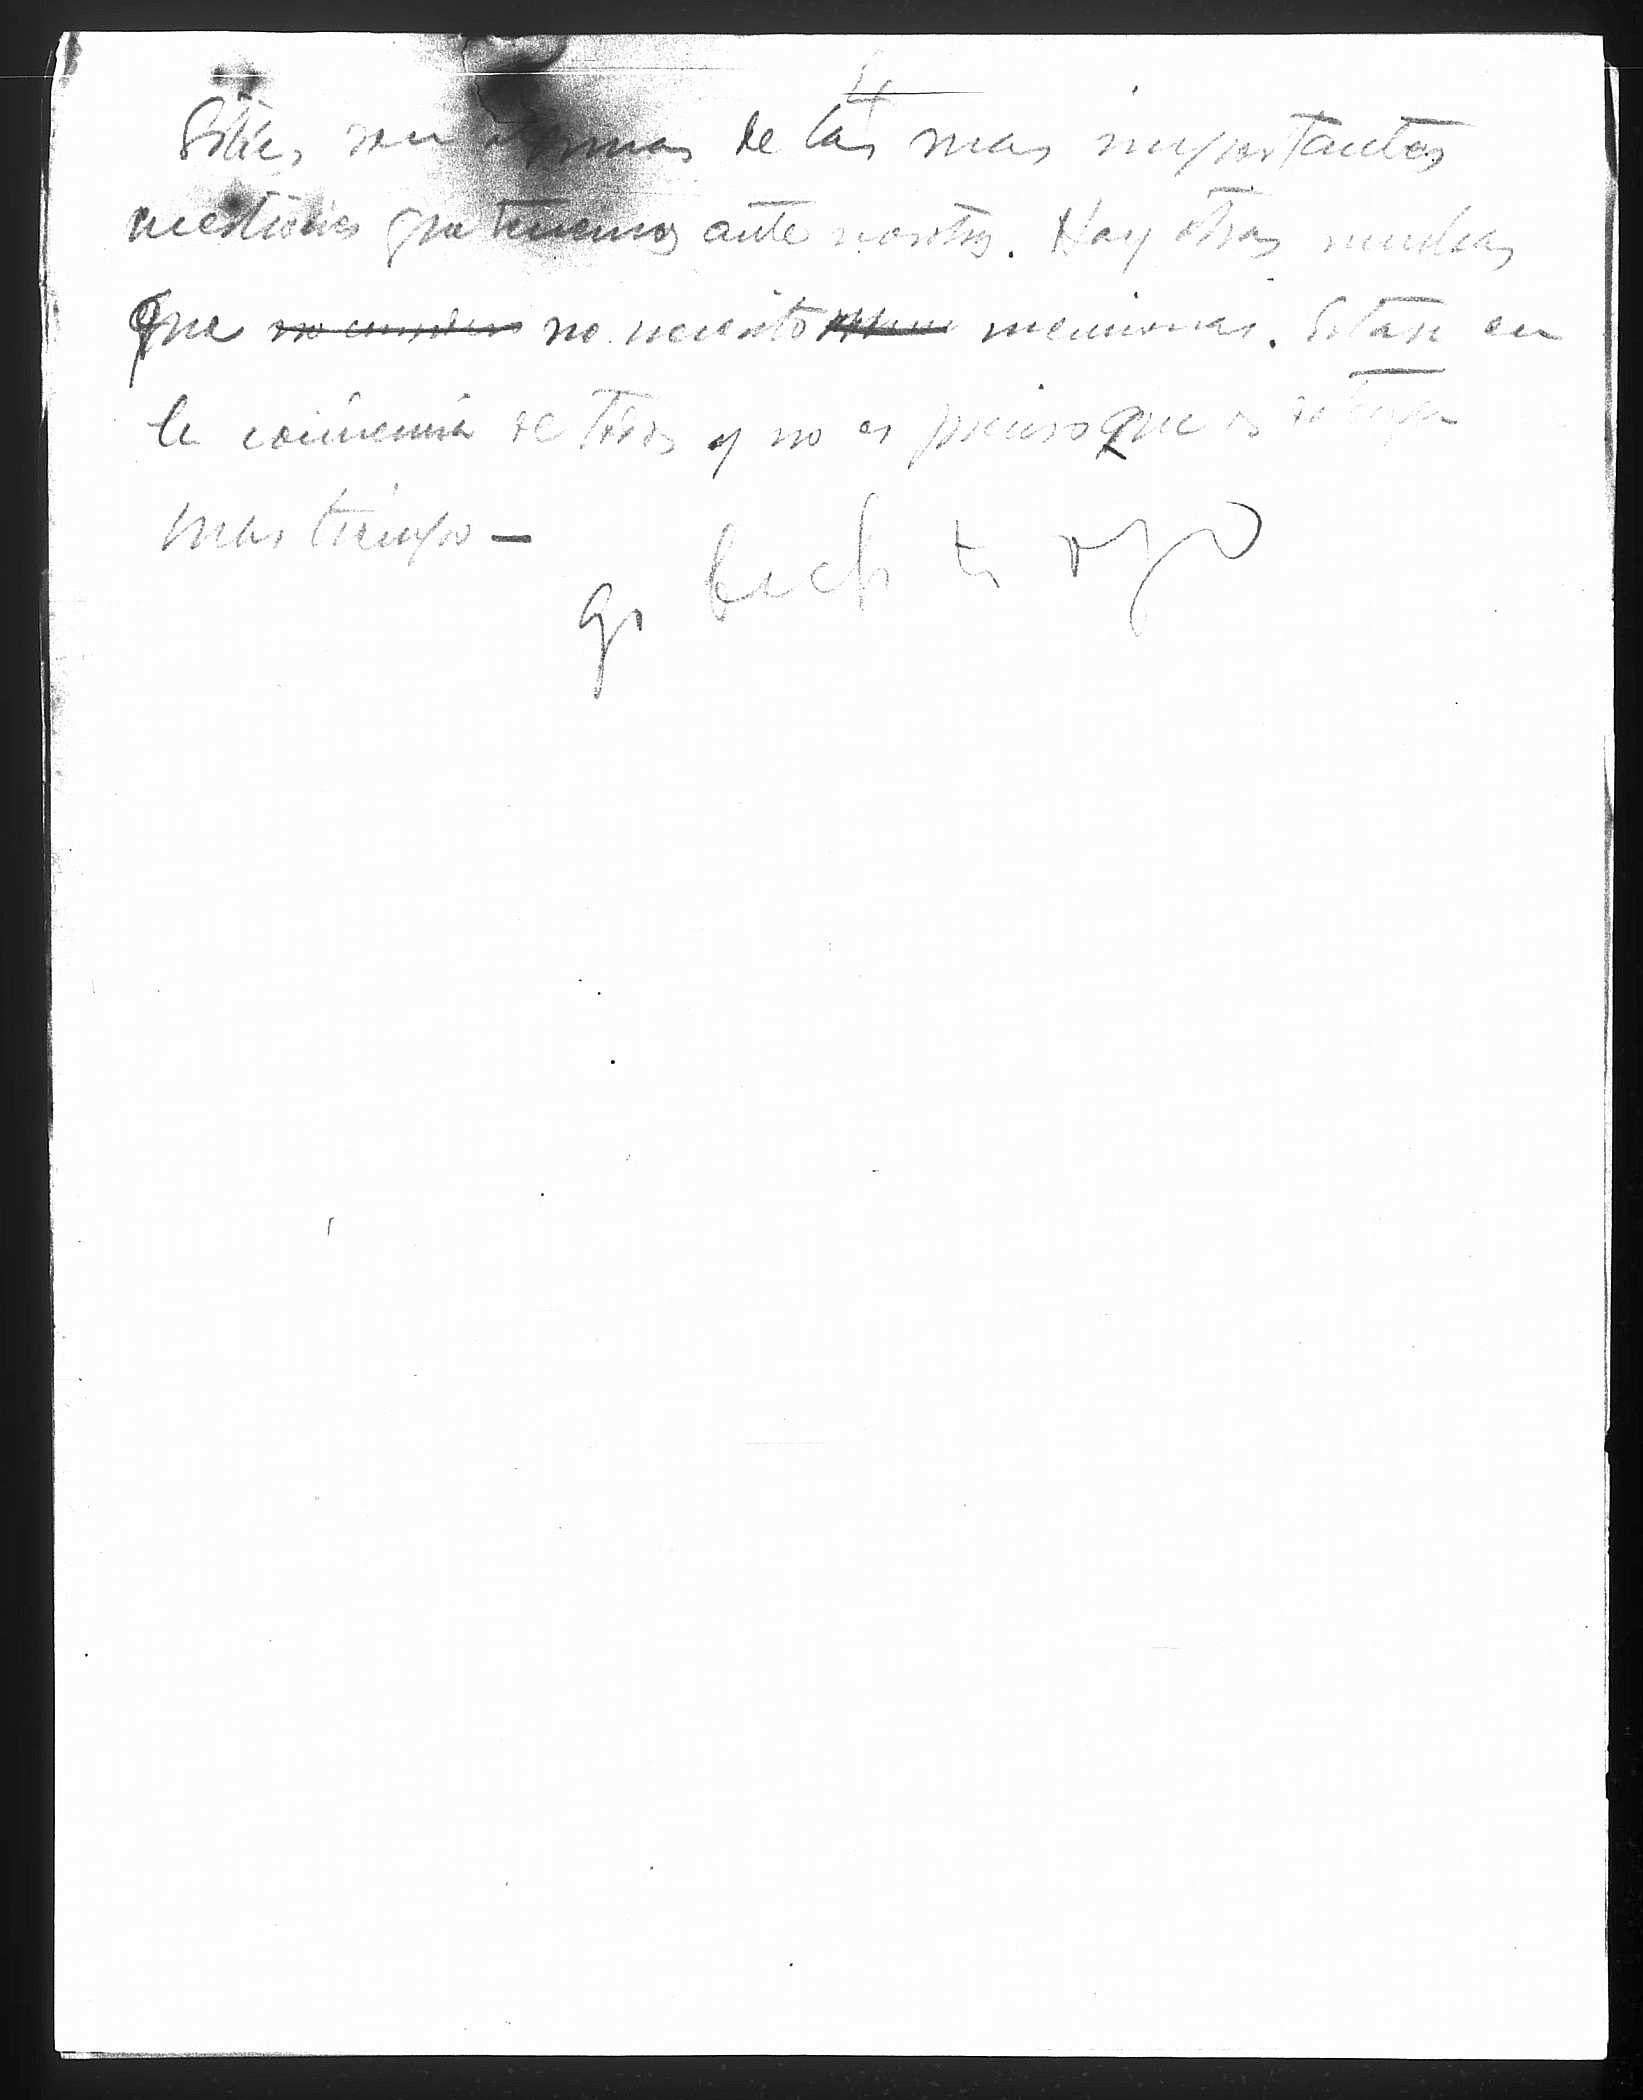 4
Estas son algunas de las mas importantes
cuestiones que tenemos ante nosotros. Hay otras muchas
que no necesito mencionar. Estan en
la conciencia de todos y no es preciso que os detenga
mas tiempo —
go back to